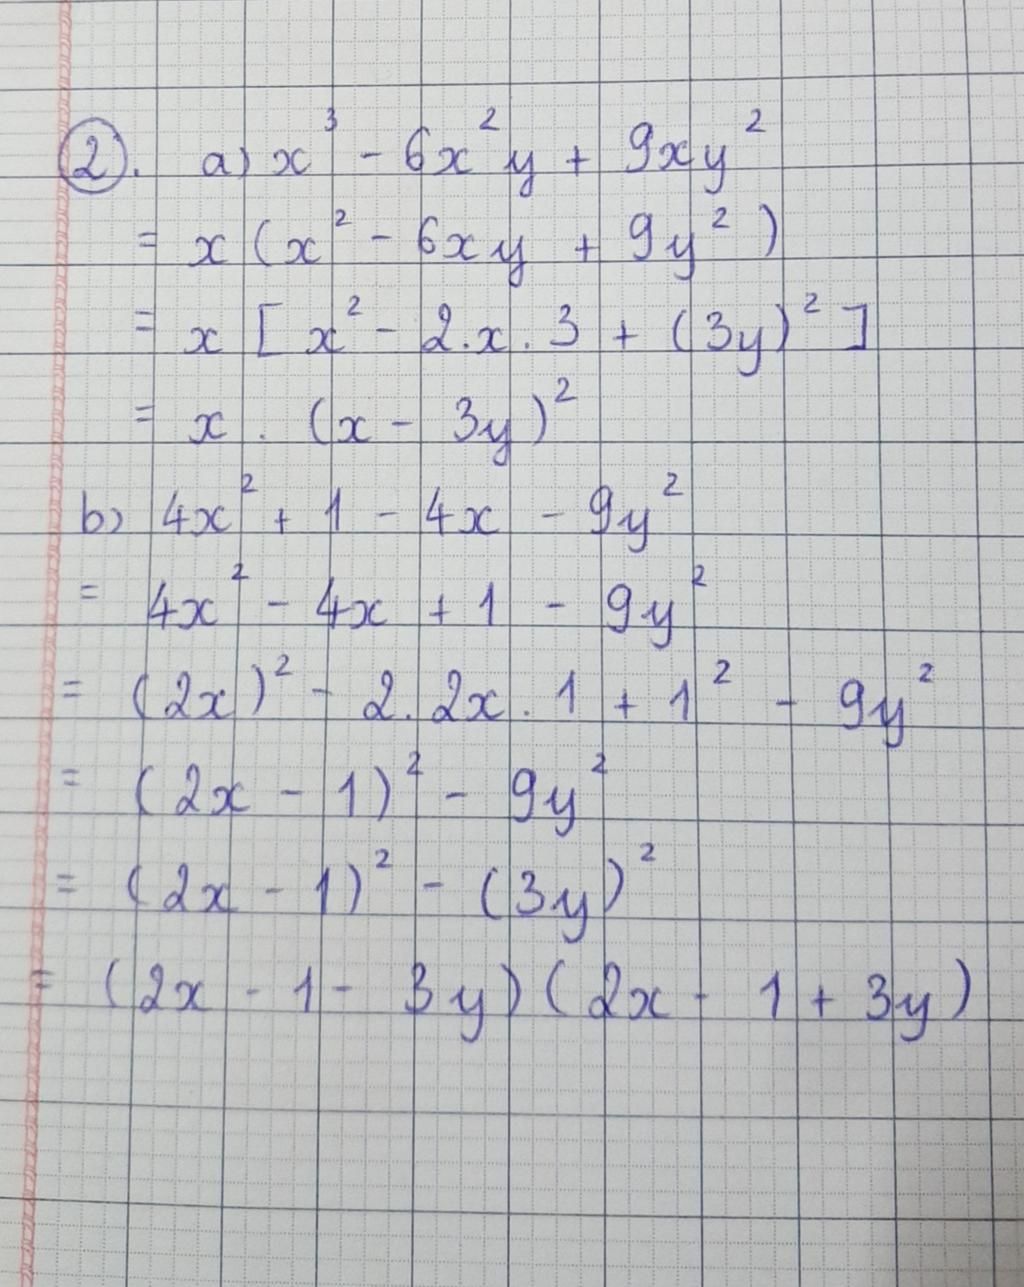 ②. a) x³ - 6x²y + 9xy²
= x (x² - 6xy + 9y²)
= x [x² - 2.x.3 + (3y)²]
= x . (x - 3y)²
b) 4x² + 1 - 4x - 9y²
= 4x² - 4x + 1 - 9y²
= (2x)² - 2.2x.1 + 1² - 9y²
= (2x - 1)² - 9y²
= (2x - 1)² - (3y)²
= (2x - 1 - 3y)(2x - 1 + 3y)